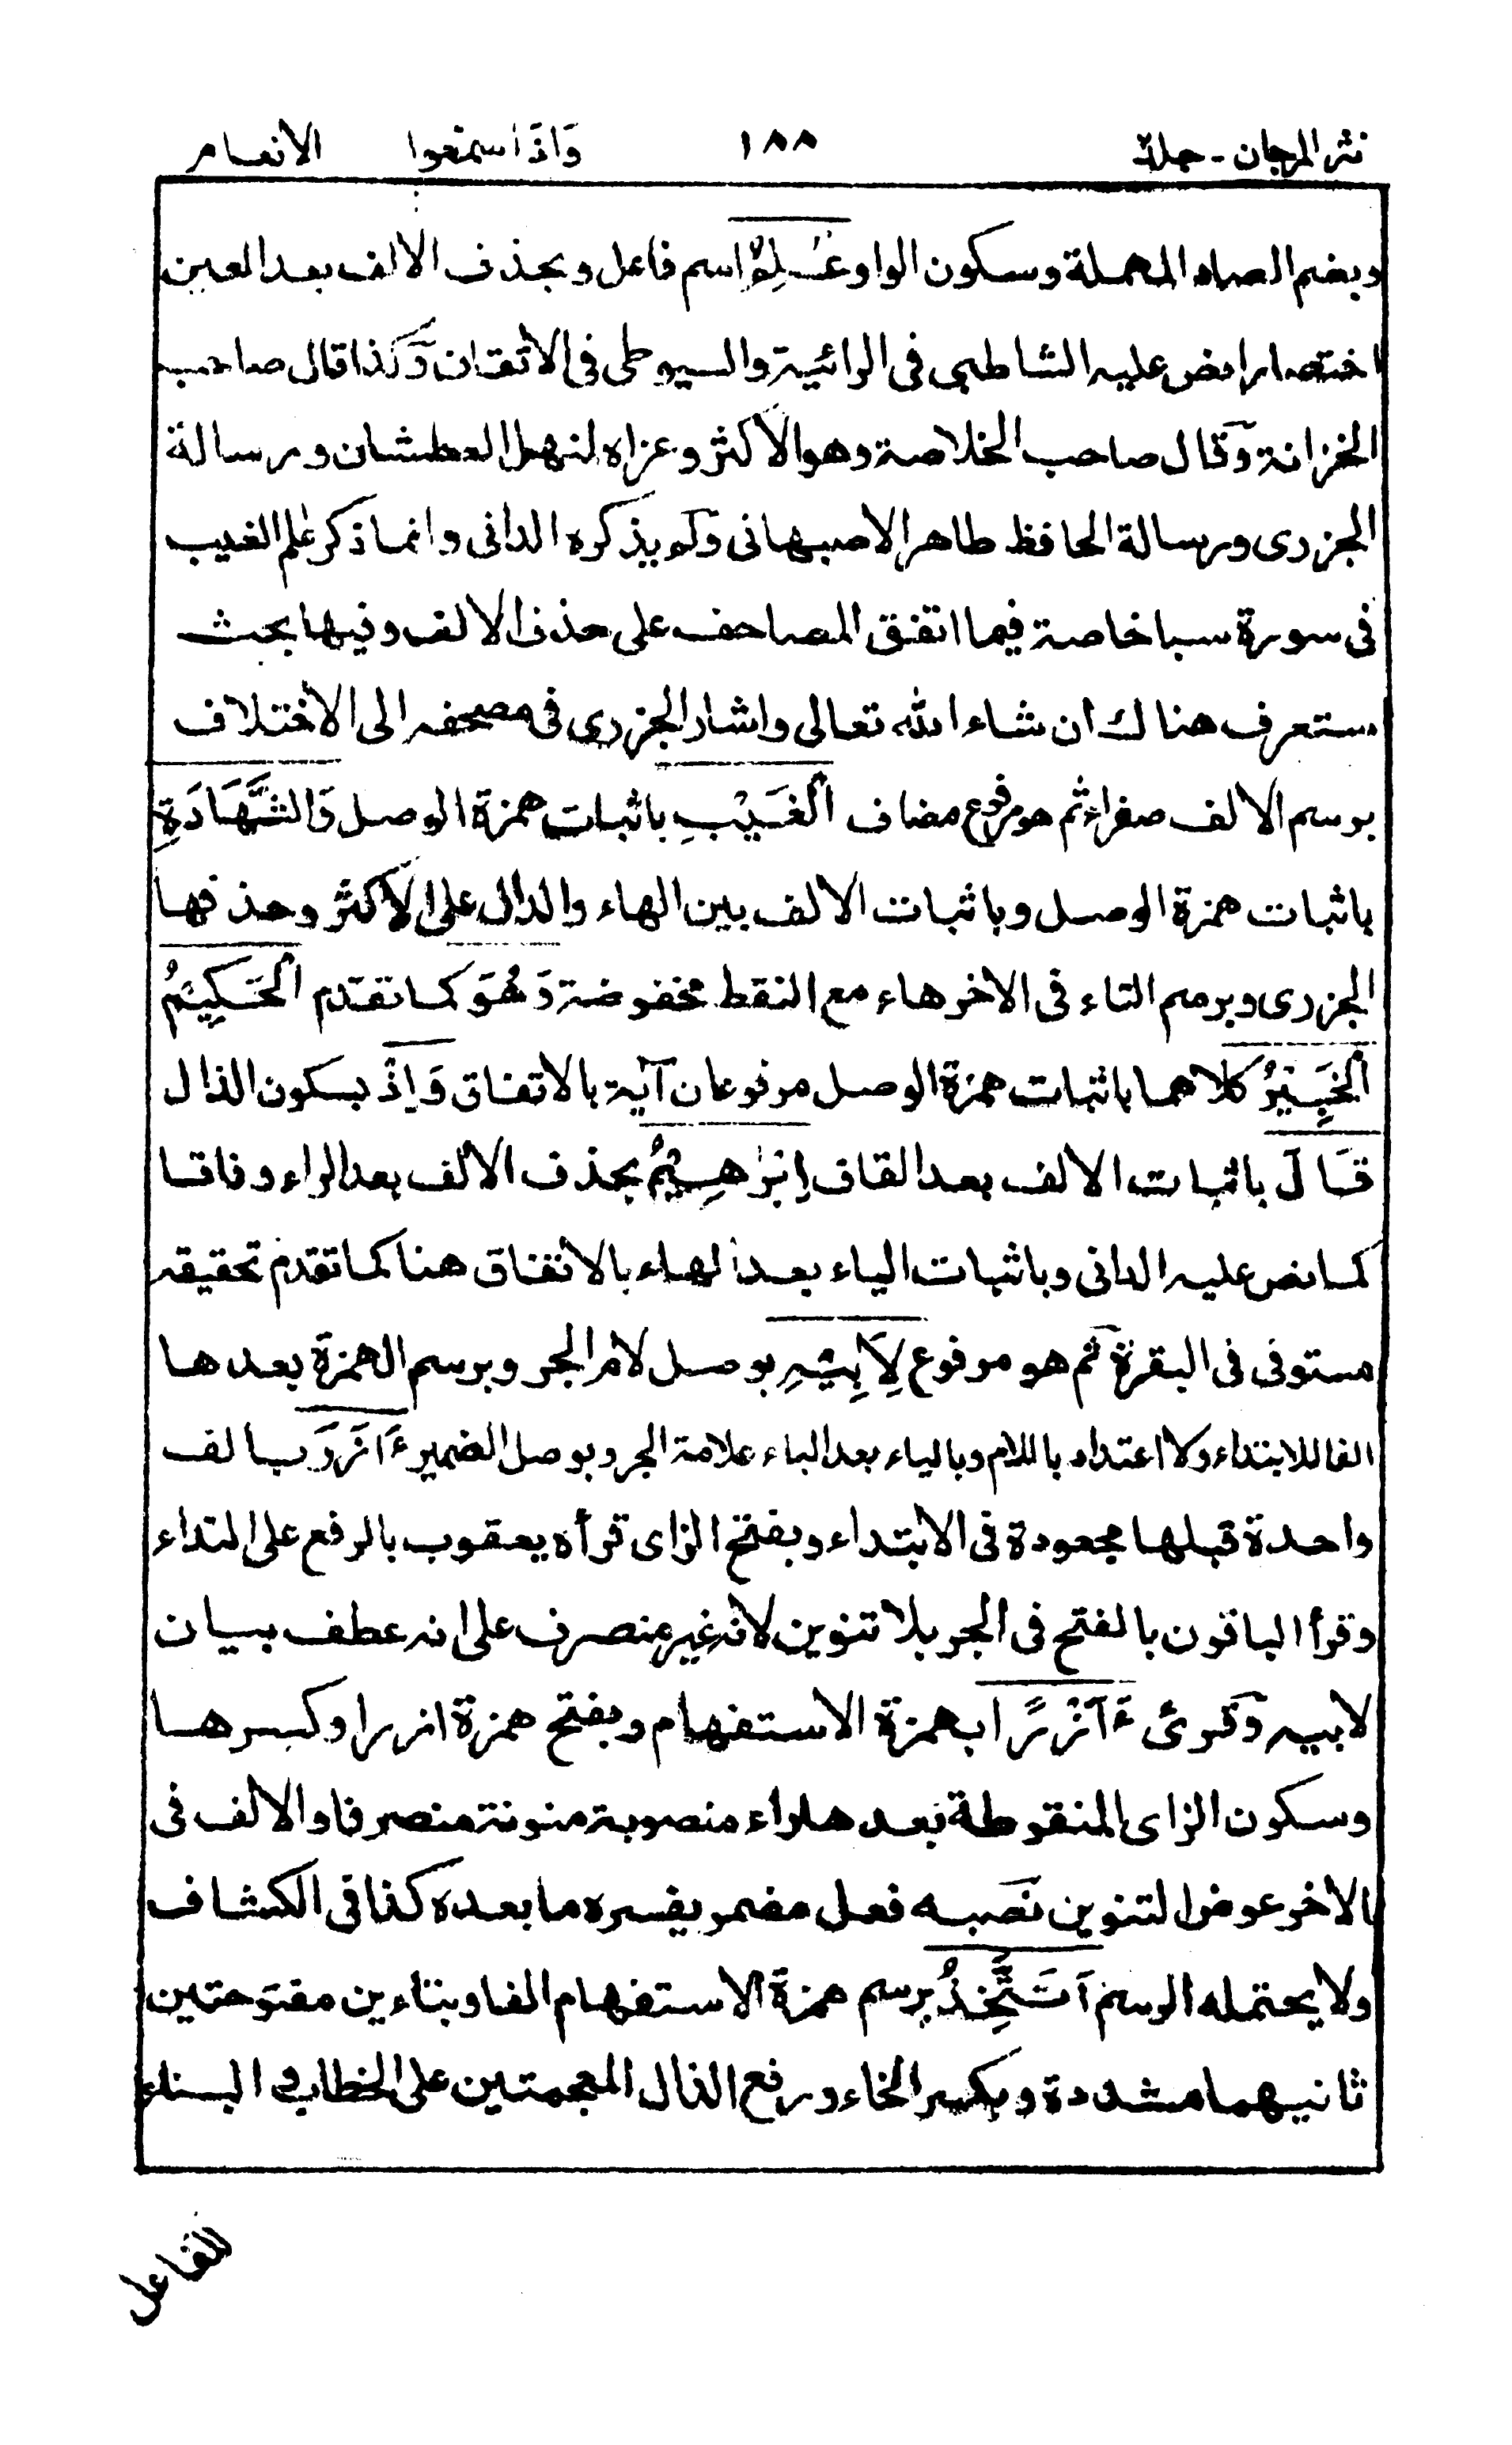 نثر المرجان - جلد ٢ ١٨٨ وَاِذَا سمعوا الانعام
وبضم الصاد المهملة وسكون الواو عٰلِمُ اسم فاعل وبحذف الالف بعد العين
اختصارا نص عليه الشاطبي في الرائية والسيوطى فى الاتقان وكذا قال صاحب
الخزانة وقال صاحب الخلاصة وهو الاكثر وعزاه لنهل العطشان ورسالة
الجزرى ورسالة الحافظ طاهر الاصبهانى ولم يذكره الدانى وانما ذكر عٰلم الغيب
فى سورة سبا خاصة فيما اتفق المصاحف على حذف الالف وفيها بحث
ستعرف هناك ان شاء الله تعالى واشار الجزرى فى مصحفه الى الاختلاف
برسم الالف صفراء ثم هو مرفوع مضاف الْغَيْبِ باثبات همزة الوصل وَالشَّهَادَةِ
باثبات همزة الوصل وباثبات الالف بين الهاء والدال على الاكثر وحذفها
الجزرى وبرسم التاء فى الاخر هاء مع النقط مخفوضة وَهُوَ كما تقدم الْحَكِيْمُ
الْخَبِيْرُ كلاهما باثبات همزة الوصل مرفوعان آية بالاتفاق وَاِذْ بسكون الذال
قَالَ باثبات الالف بعد القاف اِبْرٰهِيْمُ بحذف الالف بعد الراء وفاقا
كما نص عليه الدانى وباثبات الياء بعد الهاء بالاتفاق هنا كما تقدم تحقيقه
مستوفى فى البقرة ثم هو مرفوع لِاَبِيْهِ بوصل لام الجر وبرسم الهمزة بعدها
الفا للابتداء ولا اعتداد باللام وبالياء بعد الباء علامة الجر وبوصل الضمير ءَازَرَ بالف
واحدة قبلها مجعودة فى الابتداء وبفتح الزاى قرأه يعقوب بالرفع على النداء
وقرأ الباقون بالفتح فى الجر بلا تنوين لانه غير منصرف على انه عطف بيان
لابيه وقرئ ءَآزْرًا بهمزة الاستفهام وبفتح همزة ازرا وكسرها
وسكون الزاى المنقوطة بعدها راء منصوبة منونة منصرفا والالف فى
الاخر عوض التنوين نصبه فعل مضمر يفسره ما بعده كذا فى الكشاف
ولا يحتمله الرسم اَتَتَّخِذُ برسم همزة الاستفهام الفا وبتاءين مفتوحتين
ثانيهما مشددة وبكسر الخاء ورفع الذال المعجمتين على الخطاب والبناء
للفاعل